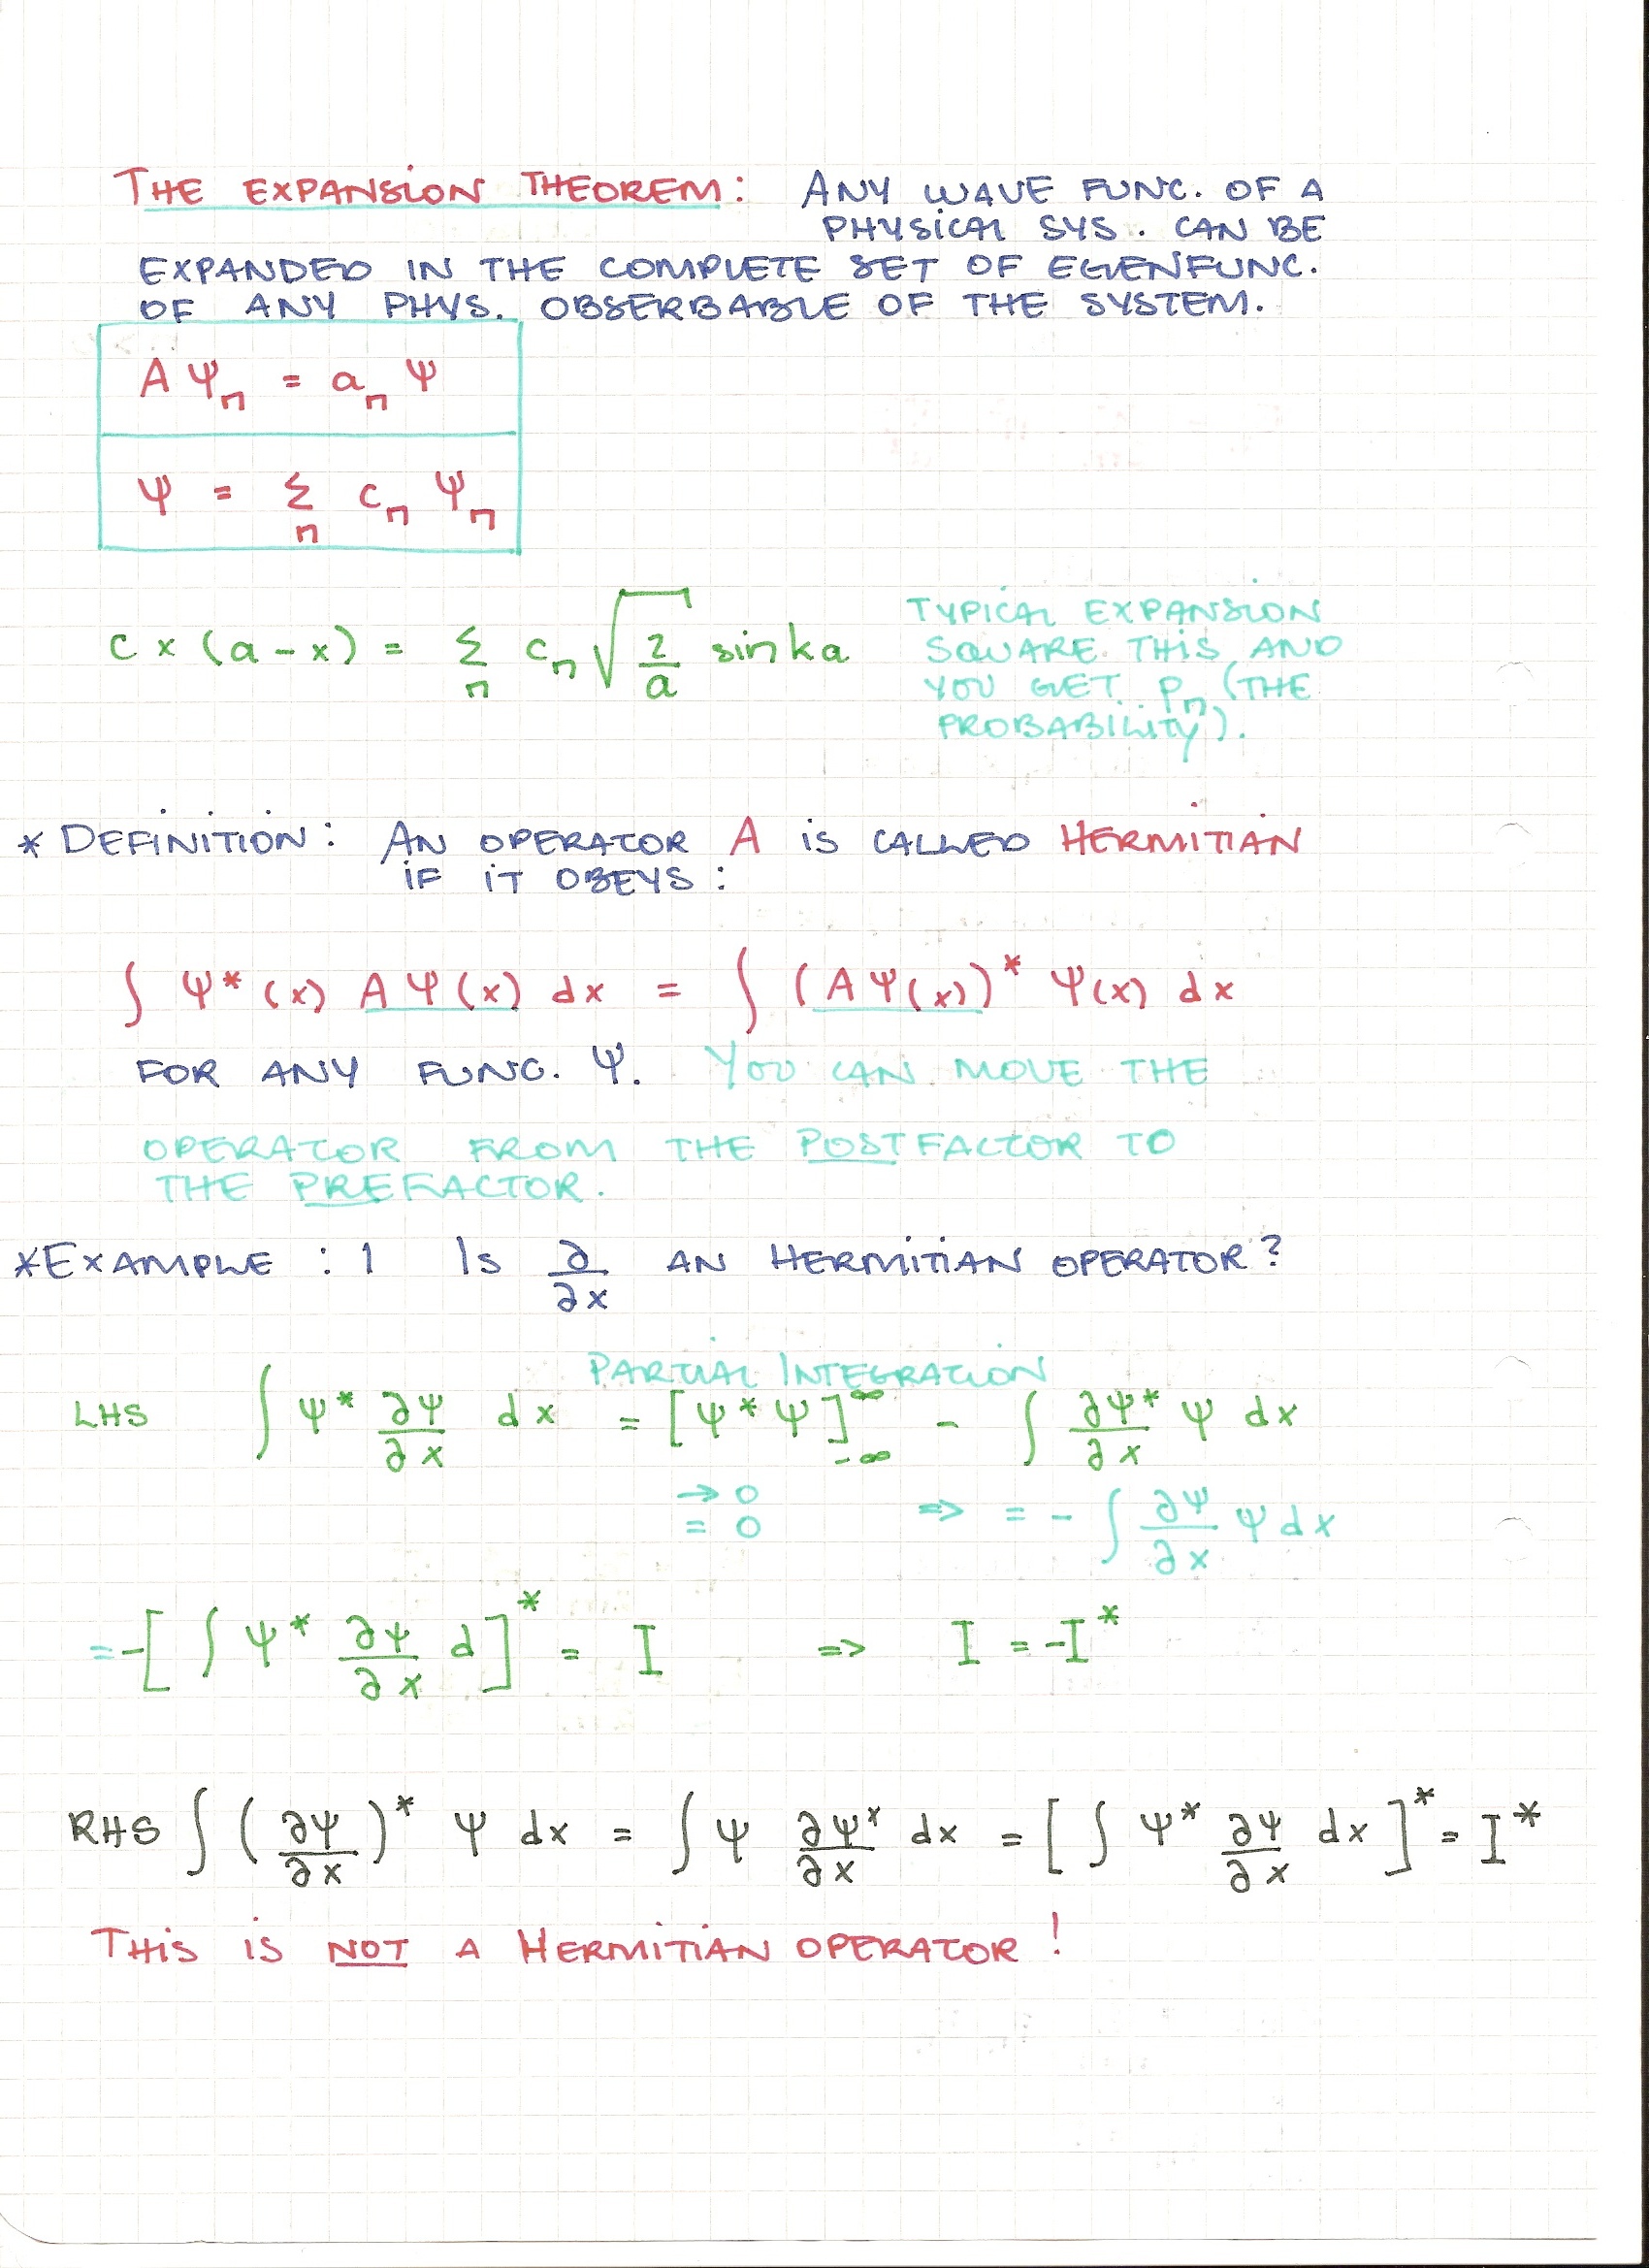 THE EXPANSION THEOREM: ANY WAVE FUNC. OF A
PHYSICAL SYS. CAN BE
EXPANDED IN THE COMPLETE SET OF EGENFUNC.
OF ANY PHYS. OBSERBABLE OF THE SYSTEM.
A Ψn = an Ψ
Ψ = Σn cn Ψn
c x (a - x) = Σn cn √(2/a) sin ka
TYPICAL EXPANSION
SQUARE THIS AND
YOU GET Pn (THE
PROBABILITY).
* DEFINITION: AN OPERATOR A IS CALLED HERMITIAN
IF IT OBEYS:
∫ Ψ*(x) A Ψ(x) dx = ∫ (A Ψ(x))* Ψ(x) dx
FOR ANY FUNC. Ψ. YOU CAN MOVE THE
OPERATOR FROM THE POSTFACTOR TO
THE PREFACTOR.
* EXAMPLE : 1 IS ∂/∂x AN HERMITIAN OPERATOR?
PARTIAL INTEGRATION
LHS ∫ Ψ* ∂Ψ/∂x dx = [Ψ*Ψ]∞-∞ - ∫ ∂Ψ*/∂x Ψ dx
→ 0
= 0 => = - ∫ ∂Ψ/∂x Ψ dx
= -[∫ Ψ* ∂Ψ/∂x d]* = I => I = -I*
RHS ∫ (∂Ψ/∂x)* Ψ dx = ∫ Ψ ∂Ψ*/∂x dx = [∫ Ψ* ∂Ψ/∂x dx]* = I*
THIS IS NOT A HERMITIAN OPERATOR!